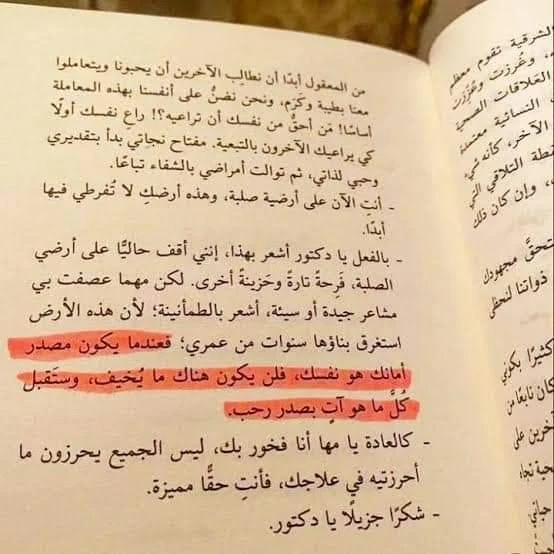 من المعقول أبدًا أن نطالِب الآخرين أن يحبونا ويتعاملوا
معنا بطيبة وكَرَم، ونحن نضنُّ على أنفسنا بهذه المعاملة
أساسًا! مَن أحقُّ من نفسك أن تراعيه؟! راعِ نفسك أولًا
كي يراعيك الآخرون بالتبعية. مفتاح نجاتي بدأ بتقديري
وحبي لذاتي، ثم توالت أمراضي بالشفاء تباعًا.
- أنتِ الآن على أرضية صلبة، وهذه أرضكِ لا تُفرطي فيها
أبدًا.
- بالفعل يا دكتور أشعر بهذا، إنني أقف حاليًّا على أرضي
الصلبة، فَرِحةً تارةً وحَزينةً أخرى. لكن مهما عصفت بي
مشاعر جيدة أو سيئة، أشعر بالطمأنينة؛ لأن هذه الأرض
استغرق بناؤها سنوات من عمري؛ فعندما يكون مصدر
أمانك هو نفسك، فلن يكون هناك ما يُخيف، وستَقبل
كُلَّ ما هو آتٍ بصدر رحب.
- كالعادة يا مها أنا فخور بك، ليس الجميع يحرزون ما
أحرزتيه في علاجك، فأنتِ حقًّا مميزة.
- شكرًا جزيلًا يا دكتور.
الشرقية تقوم معظم
، وعُززت وعُزَّزت
العلاقات الصحي
النسائية معتمدة
الآخر، كأنه شي
نقطة التلاقي التي
، وإن كان ذلك
تتحقَّ مجهودك
ذواتنا لنحظى
كثيرًا بكوني
كان نابعًا من
خرين على